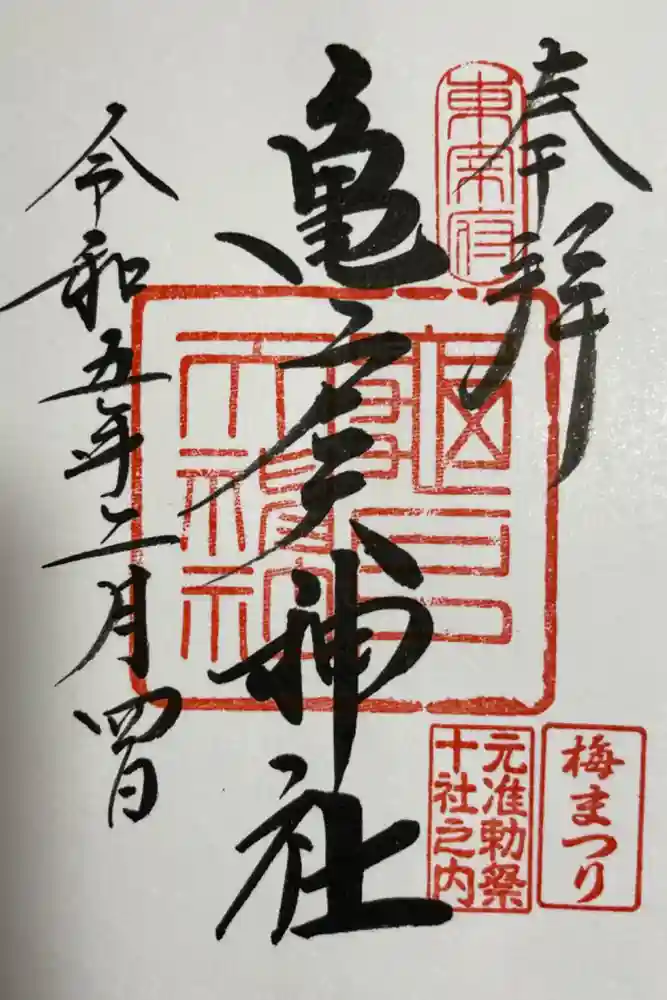 奉拝
東宰府
亀戸天神社
令和五年二月四日
梅まつり
元准勅祭
十社之内